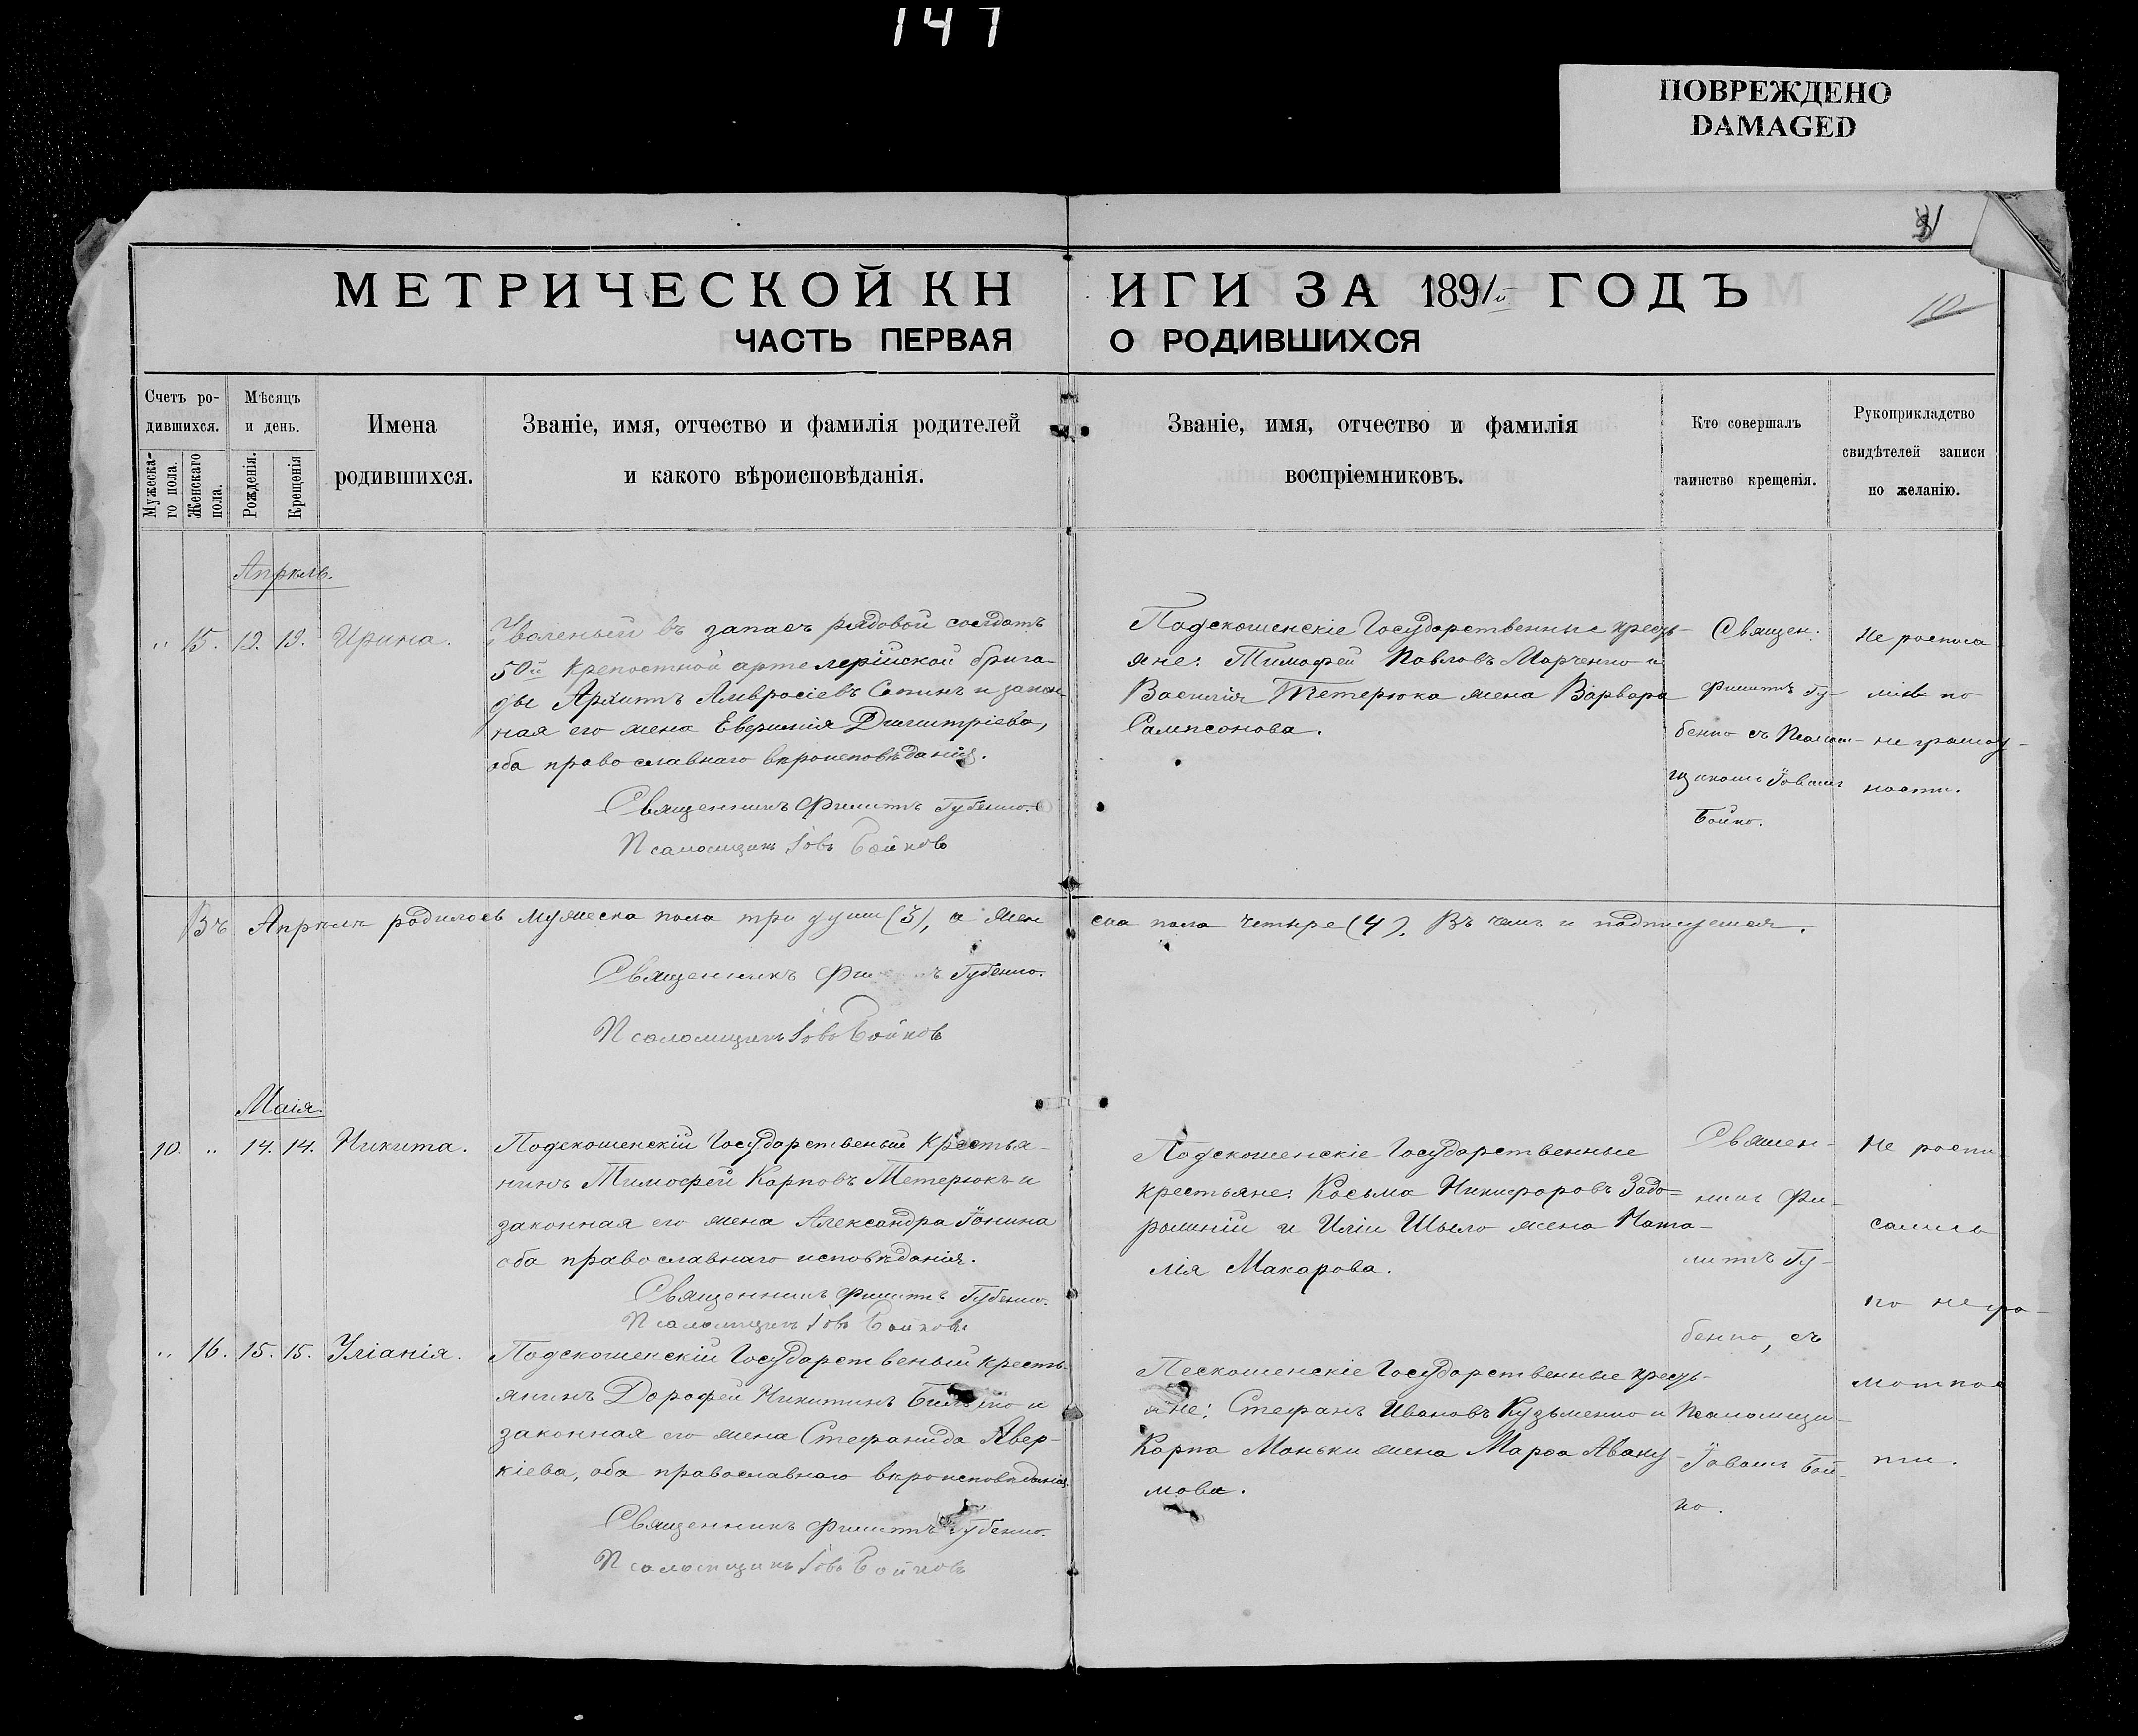 147
ПОВРЕЖДЕНО
DAMAGED
МЕТРИЧЕСКОЙ КНИГИ ЗА 1891й ГОДЪ
ЧАСТЬ ПЕРВАЯ О РОДИВШИХСЯ
10
Счетъ ро-
дившихся.
Мужеска-
го пола.
Женскаго
пола.
Мѣсяцъ
и день.
Рожденія.
Крещенія
Имена
родившихся.
Званіе, имя, отчество и фамилія родителей
и какого вѣроисповѣданія.
Званіе, имя, отчество и фамилія
воспріемниковъ.
Кто совершалъ
таинство крещенія.
Рукоприкладство
свидѣтелей записи
по желанію.
Апрѣль.
" 15. 12. 19. Ирина.
въ запасъ рядовой солдатъ
50й крепостной артелерійской брига-
ды Амвросіевъ и закон-
ная его жена Димитріева,
оба православнаго вѣроисповѣданія.
Священникъ Филиппъ Губенко.
Псаломщикъ Іовъ Бойковъ
Подскошенскіе Государственные кресть-
яне: Тимофей Павловъ Марченко и
Василія Тетерюка жена Варвара
Сампсонова.
Священ.
Филиппъ Гу-
бенко съ Псалом-
щикомъ Іовомъ
Бойко.
Не росписа
лись по
не грамот-
ности.
Въ Апрѣлѣ родилось мужеска пола три души (3), а женска пола четыре (4). Въ чемъ и подписуемся.
Священникъ Губенко.
Псаломщикъ Іовъ Бойковъ
Маія.
10. " 14. 14. Никита.
Подскошенскій Государственый Крестья-
нинъ Тимофей Карповъ Тетерюкъ и
законная его жена Александра Іонина
оба православнаго исповѣданія.
Священникъ Филиппъ Губенко.
Псаломщикъ Іовъ Бойковъ
Подскошенскіе Государственные
крестьяне: Косьма Никифоровъ Задо-
рожній и Иліи Шыло жена Ната-
лія Макарова.
Священ-
никъ Фи-
липпъ Гу-
бенко, съ
Псаломщи-
Іовомъ Бой-
ко.
Не роспи
сались
по негра-
мотно
сти.
" 16. 15. 15. Уліанія.
Подскошенскій Государственый кресть-
янинъ Дорофей Никитинъ и
законная его жена Стефанида Авер-
кіева, оба православнаго вѣроисповѣданія.
Священникъ Филиппъ Губенко.
Псаломщикъ Іовъ Бойковъ
Пескошенскіе Государственные кресть-
яне: Стефанъ Ивановъ Кузьменко и
Карпа Маньки жена Марѳа Аваку-
мова.